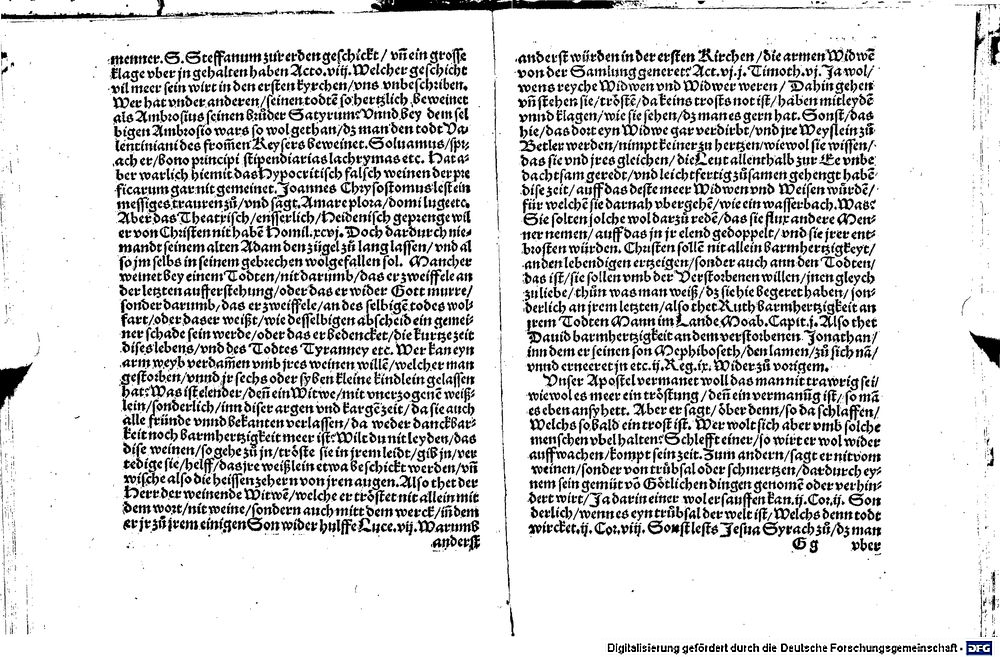 menner. S. Steffanum zur erden geschickt / vñ ein grosse
klage vber jn gehalten haben Acto. viij. Welcher geschicht
vil meer sein wirt in den ersten kyrchen / vns vnbeschriben.
Wer hat vnder anderen / seinen todtē so hertzlich beweinet
als Ambrosius seinen brůder Satyrum: Vnnd bey dem sel
bigen Ambrosio wars so wol gethan / dz man den todt Va
lentiniani des from̃en Keysers beweinet. Soluamus / spri
ach er / bono principi stipendiarias lachrymas etc. Hat a-
ber warlich hiemit das Hypocritisch falsch weinen der pre
ficarum gar nit gemeinet. Joannes Chrysostomus lest ein
messiges trauren zů / vnd sagt. Amare plora / domi lugeto.
Aber das Theatrisch / eusserlich / Heidenisch gepzenge wil
er von Christen nit habē Homil. xcvj. Doch dardurch nie-
mandt seinem alten Adam den zügel zů lang lassen / vnd al
so jm selbs in seinem gebrechen wolgefallen sol. Mancher
weinet bey einem Todten / nit darumb / das er zweiffele an
der letzten aufferstehung / oder das er wider Gott murre /
sonder darumb / das er zweiffele / an des selbigē todes wol-
fart / oder das er weißt / wie desselbigen abscheid ein gemei-
ner schade sein werde / oder das er bedencket / die kurtze zeit
dises lebens / vnd des Todtes Tyranney etc. Wer kan eyn
arm weyb verdam̃en vmb jres weinen willē / welcher man
gestorben / vnnd jr sechs oder syben kleine kindlein gelassen
hat: Was ist elender / deñ ein Witwe / mit vnerzogenē weiß-
lein / sonderlich / inn diser argen vnd kargē zeit / da sie auch
alle fründe vnnd bekanten verlassen / da weder danckbar-
keit noch barmhertzigkeit meer ist: Wilt du nit leyden / das
dise weinen / so gehe zů jn / tröste sie in jrem leidt / gib jn / ver
tedige sie / helff / das jre weißlein etwa beschickt werden / vñ
wische also die heissen zehern von jren augen. Also thet der
Herr der weinende Witwē / welche er tröstet nit allein mit
dem wort / nit weine / sondern auch mitt dem werck / iñ dem
er jr zů jrem einigen Son wider hulffe Luce. vij. Warumb
anderst
anderst würden in der ersten Kirchen / die armen Widwē
von der Samlung generet: Act. vj. j. Timoth. vj. Ja wol /
wens reyche Widwen vnd Widwer weren / Dahin gehen
vñ stehen sie / tröstē / da keins trosts not ist / haben mitleydē
vnnd klagen / wie sie sehen / dz man es gern hat. Sonst / das
hie / das dort eyn Widwe gar verdirbt / vnd jre Weyslein zů
Betler werden / nimpt keiner zu hertzen / wiewol sie wissen /
das sie vnd jres gleichen / die Leut allenthalb zur Ee vnbe
dachtsam geredt / vnd leichtfertig zůsamen gehengt habē
dise zeit / auff das deste meer Widwen vnd Weisen würdē /
für welchē sie darnah vbergehē / wie ein wasserbach. Was:
Sie solten solche wol darzů redē / das sie flux andere Men-
ner nemen / auff das jn jr elend gedoppelt / vnd sie jrer ent-
brosten würden. Christen sollē nit allein barmhertzigkeyt /
an den lebendigen erzeigen / sonder auch ann den Todten /
das ist / sie sollen vmb der Verstorbenen willen / jnen gleych
zu liebe / thůn was man weiß / dz sie hie begeret haben / son-
derlich an jrem letzten / also thet Ruth barmhertzigkeit an
jrem Todten Mann im Lande Moab. Capit. j. Also thet
Dauid barmhertzigkeit an dem verstorbenen Jonathan /
inn dem er seinen son Mephiboseth / den lamen / zů sich nā /
vnnd erneeret jn etc. ij. Reg. ix. Wider zů vorigem.
Vnser Apostel vermanet woll das man nit trawrig sei /
wiewol es meer ein tröstung / deñ ein vermanūg ist / so mā
es eben ansyhett. Aber er sagt / öber denn / so da schlaffen /
Welchs so bald ein trost ist. Wer wolt sich aber vmb solche
menschen vbel halten: Schlefft einer / so wirt er wol wider
auffwachen / kompt sein zeit. Zum andern / sagt er nit vom
weinen / sonder von trůbsal oder schmertzen / dardurch ey-
nem sein gemüt vō Götlichen dingen genomē oder verhin-
dert wirt / Ja darin einer wol ersauffen kan. ij. Cor. ij. Son
derlich / wenn es eyn trübsal der welt ist / Welchs denn todt
wircket. ij. Cor. viij. Sonst lests Jesua Syrach zů / dz man
G g vber
Digitalisierung gefördert durch die Deutsche Forschungsgemeinschaft - DFG